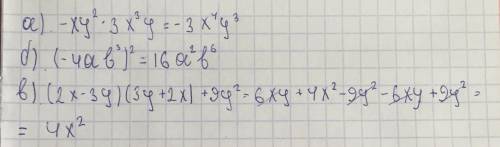 а) -xy² · 3x³y = -3x⁴y³
б) (-4ab³)² = 16a²b⁶
в) (2x-3y)(3y+2x)+9y² = 6xy+4x²-9y²-6xy+9y² =
= 4x²